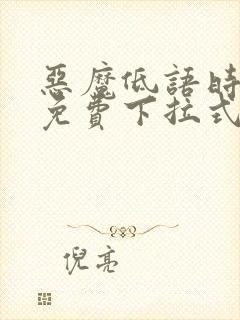 惡魔低語時
免費下拉式
倪亮